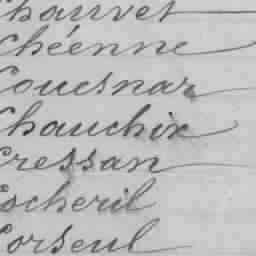 Chauvet
Chéenne
Couesnar
Chauchix
Cressan
Cocheril
Corseul